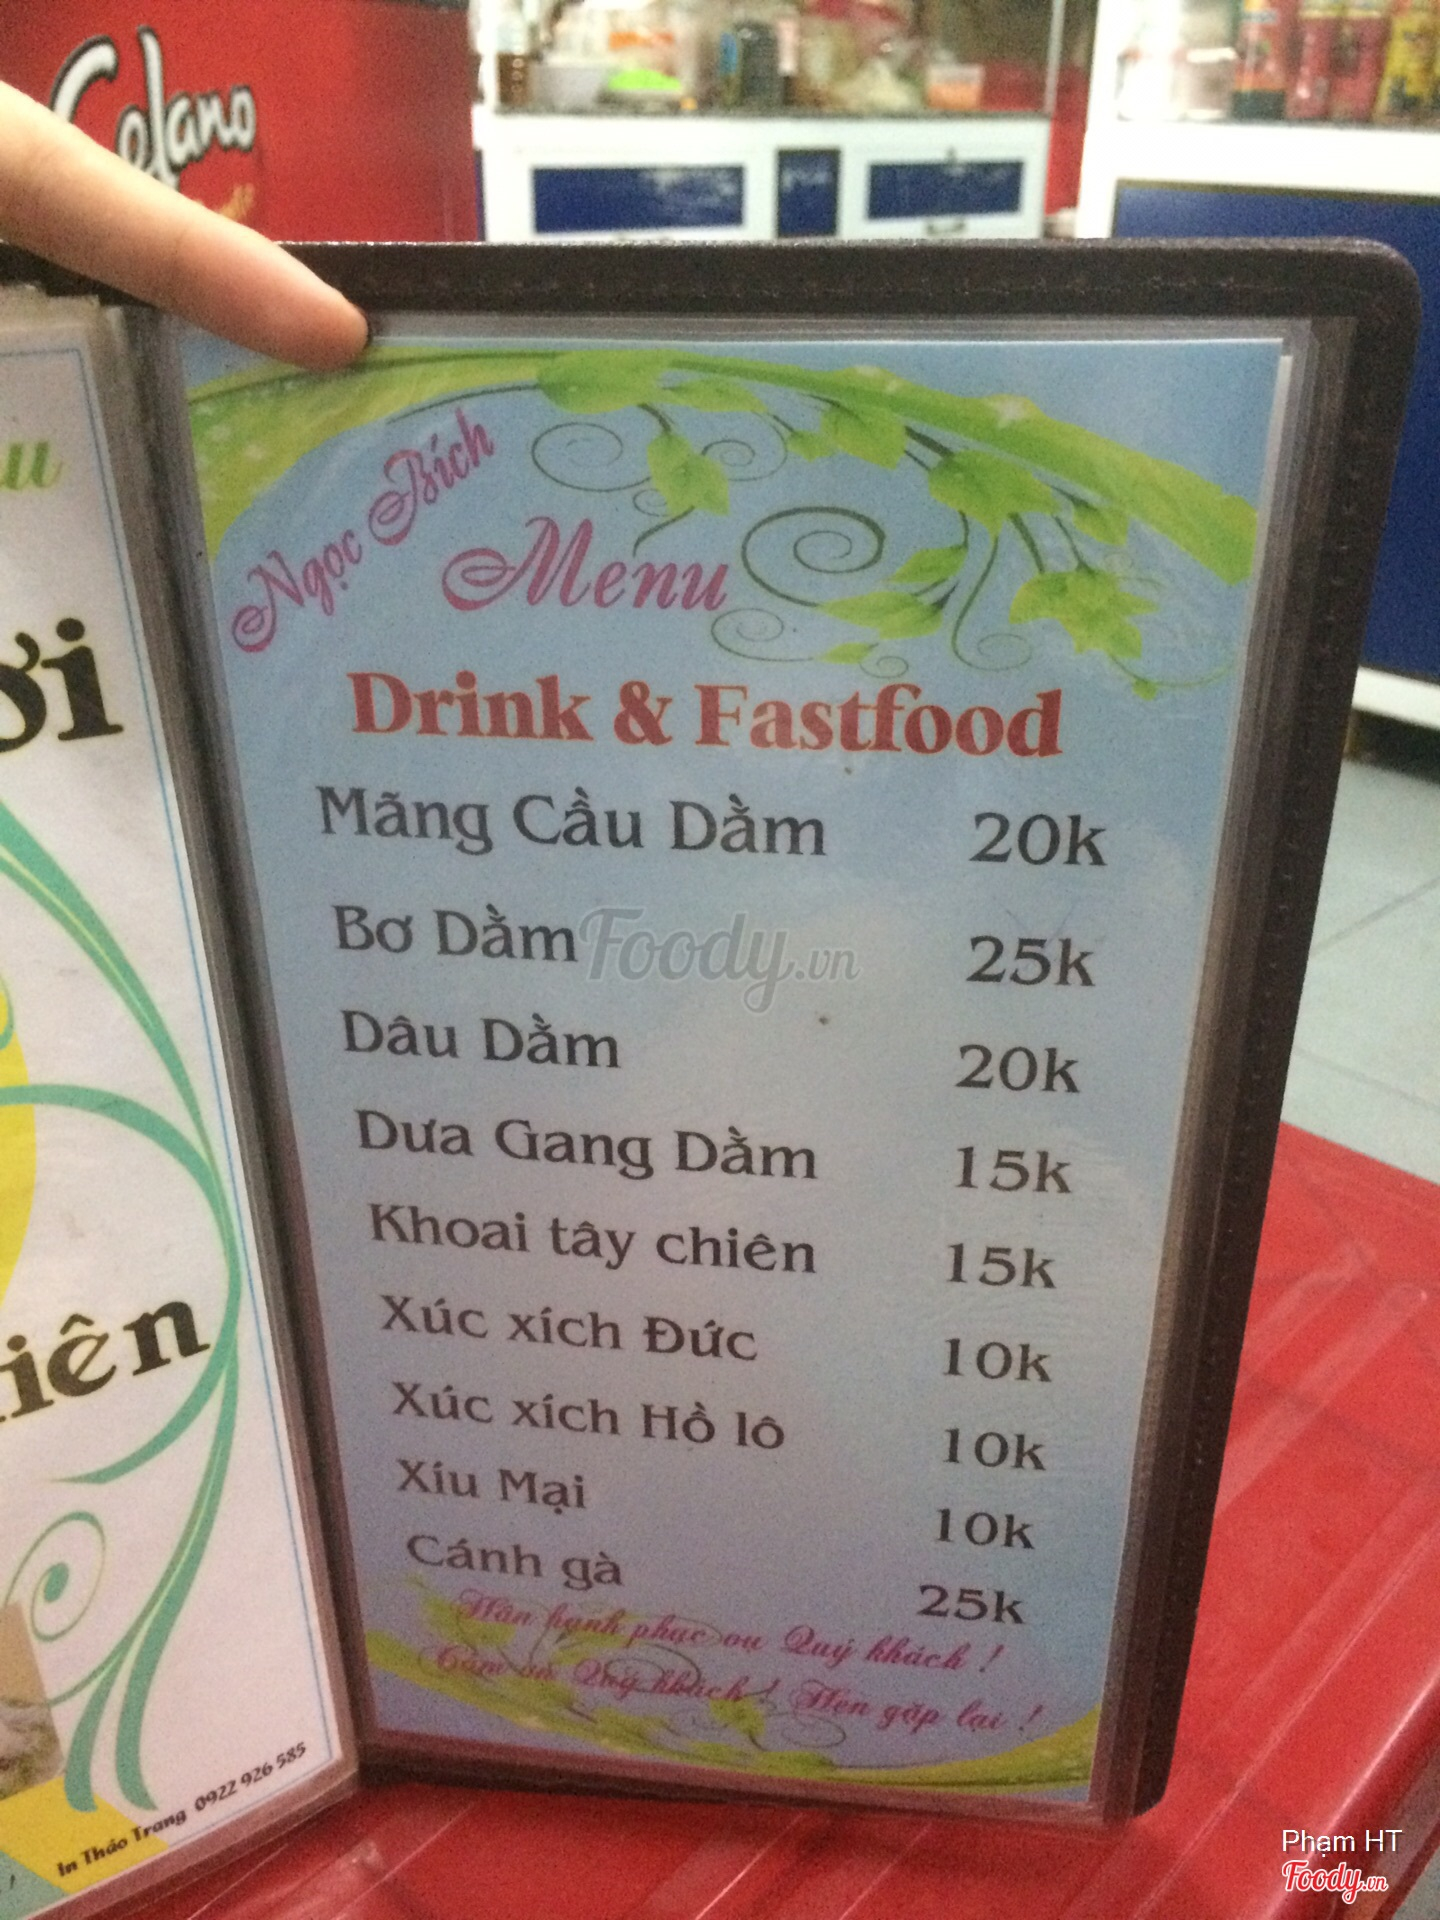 Celano
Ngọc Bích
Menu
Drink & Fastfood
Mãng Cầu Dằm 20k
Bơ Dằm 25k
Dâu Dằm 20k
Dưa Gang Dằm 15k
Khoai tây chiên 15k
Xúc xích Đức 10k
Xúc xích Hồ lô 10k
Xíu Mại 10k
Cánh gà 25k
Hân hạnh phục vụ Quý khách !
Cảm ơn Quý khách ! Hẹn gặp lại !
In Thảo Trang 0922 926 585
Foody.vn
Phạm HT
Foody.vn